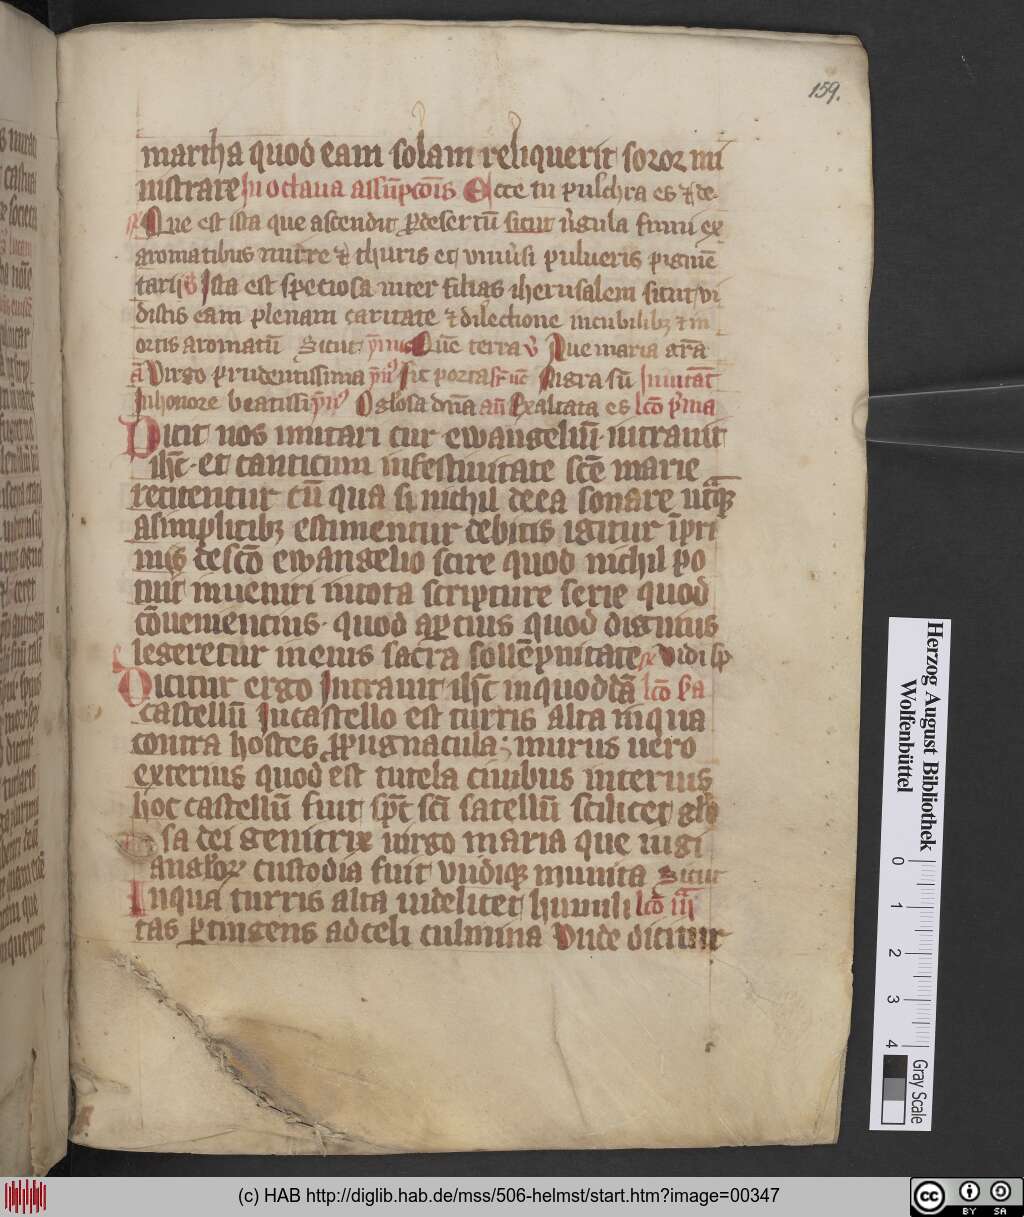 159.
martha quod eam solam reliquerit soror mi
nistrare In octaua assūpcōis Ecce tu pulchra es ⁊ de
Que est ista que ascendit ꝑdesertū sicut u̓gula fumi ex
aromatibus mirre ⁊ thuris et vniu̓si pulueris pigmē
tarii Ista est speciosa inter filias iherusalem sicut vi
distis eam plenam caritate ⁊ dilectione incubilibꝫ ⁊ in
ortis aromatū Sicut Que terra v̓ Aue maria grā
Virgo prudentissima Sit porta Nigra sū Inuitat̄
In honore beatissi O glosa dn̄a an̄ Exaltata es lc̄o p̓ma
Dicit nos imitari cur ewangeliū intrauit
ih̄c et canticum infestiuitate sc̄e marie
recitentur cū qua si nichil de ea sonare utiqꝫ
asimplicibꝫ estimentur debitis igitur īpri
mis desc̄o ewangelio scire quod nichil po
tuit inueniri intota scripture serie quod
cōueniencius quod aꝑcius quod dignius
legeretur ineius sacra sollēpnitate Vidi sp̄
Dicitur ergo Intrauit ih̄c inquoddā lc̄o s̄a
castellū Incastello est turris alta inqua
contra hostes ꝓpugnacula murus uero
exterius quod est tutela ciuibus interius
hoc castellū fuit sp̄c sc̄i satellū scilicet glo
sa dei genitrix uirgo maria que iugi
anglorꝫ custodia fuit vndiqꝫ munita Sicut
Inqua turris alta uidelicet humili lc̄o iiī
tas ꝑtingens adceli culmina Vnde dicitur
Herzog August Bibliothek
Wolfenbüttel
0 1 2 3 4
Gray Scale
(c) HAB http://diglib.hab.de/mss/506-helmst/start.htm?image=00347
cc BY SA